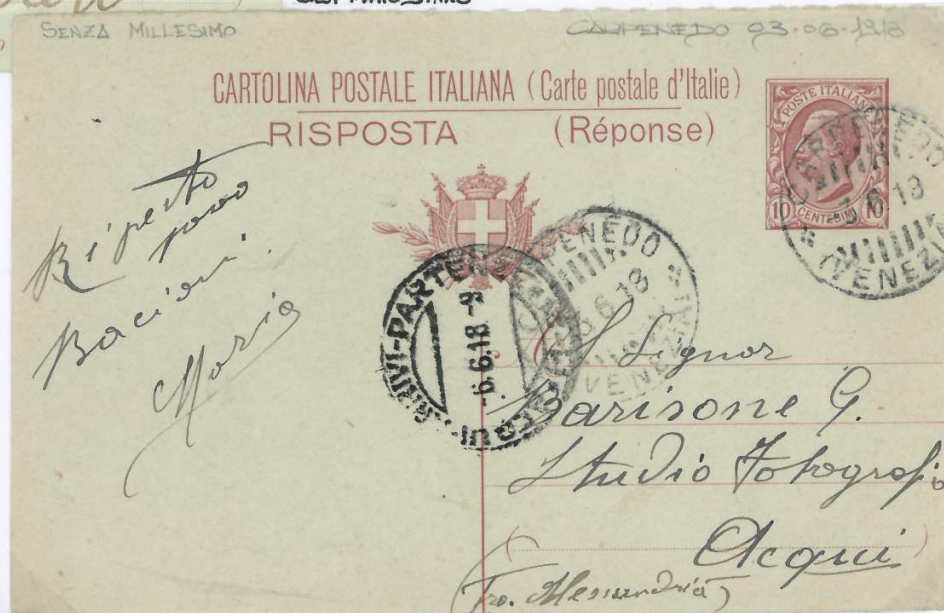 SENZA MILLESIMO
CARPENEDO 03.06.1918
CARTOLINA POSTALE ITALIANA (Carte postale d'Italie)
RISPOSTA (Réponse)
POSTE ITALIANE
10 CENTESIMI 10
CARPENEDO
3.6.18
(VENEZIA)
CARPENEDO
3.6.18
(VENEZIA)
ARRIVI-PARTENZE
-6.6.18-9
ACQUI
Ripeto
Bacioni.
Maria
Al Signor
Barisone G.
Studio Fotografi
Acqui
(Pro. Alessandria)